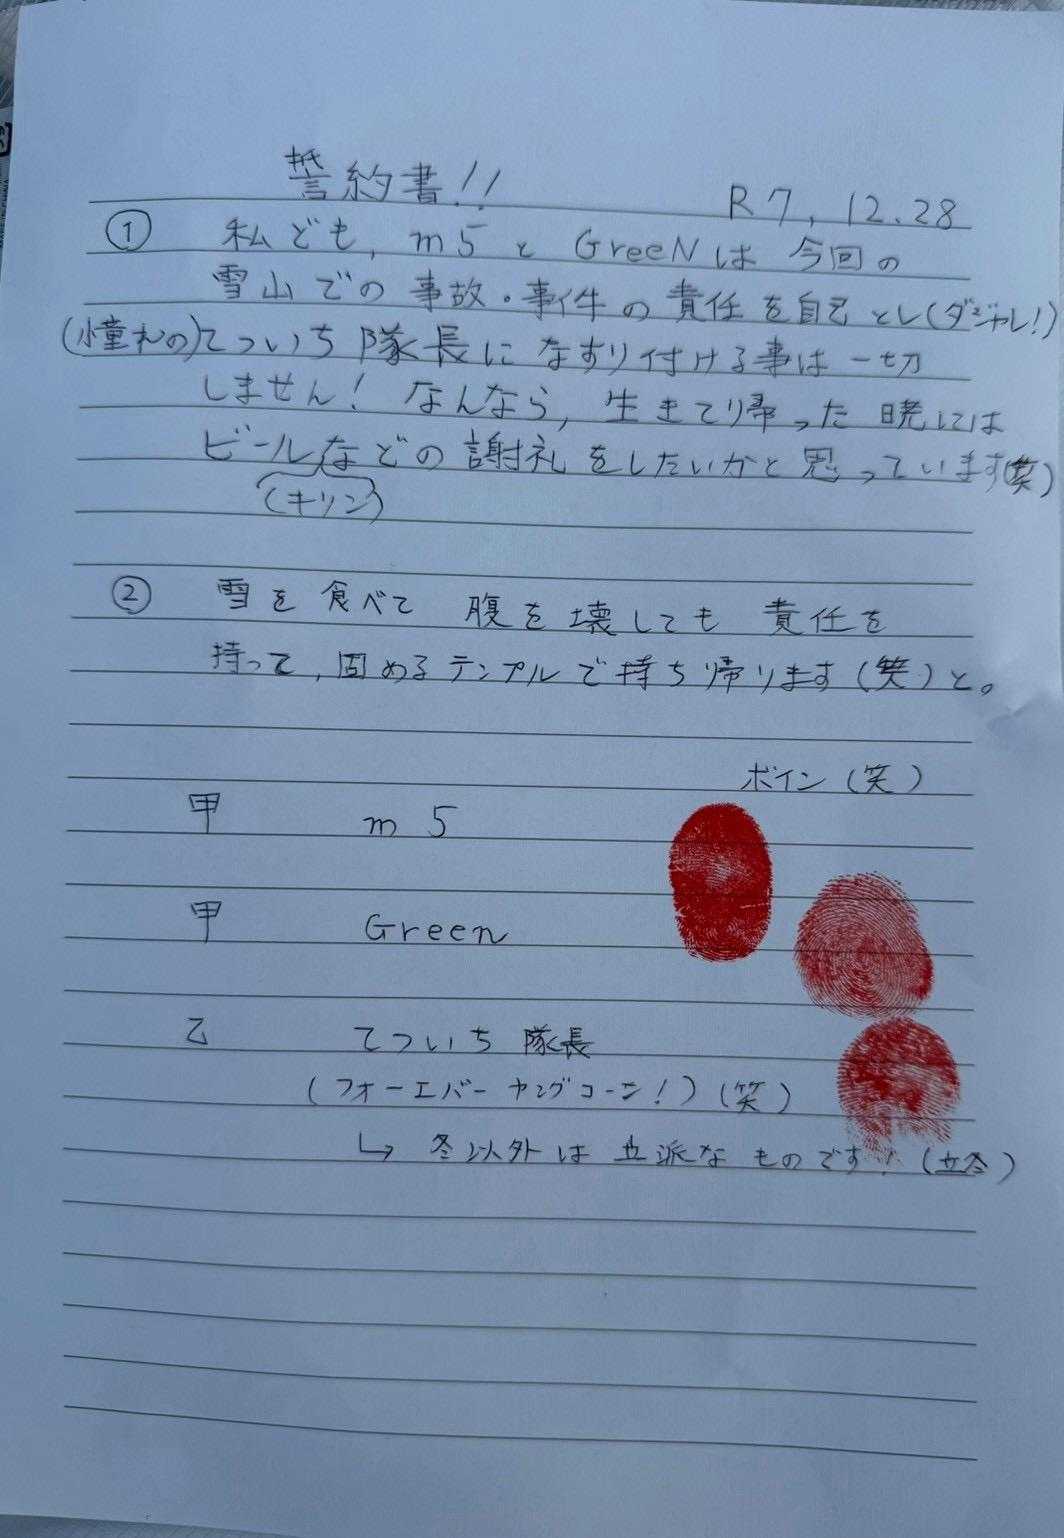 誓約書!!
R7, 12.28
① 私ども, m5 と GreeN は 今回の
雪山での 事故・事件の 責任を自己とし(ダジャレ!)
(憧れの)てついち隊長になすり付ける事は一切
しません! なんなら, 生きて帰った 暁には
ビールなどの謝礼をしたいかと思っています(笑)
(キリン)
② 雪を食べて 腹を壊しても 責任を
持って, 固めるテンプルで持ち帰ります(笑)と。
ボイン(笑)
甲 m5
甲 Green
乙 てついち 隊長
(フォーエバー ヤングコーン!)(笑)
↳ 冬以外は 立派な ものです! (立冬)